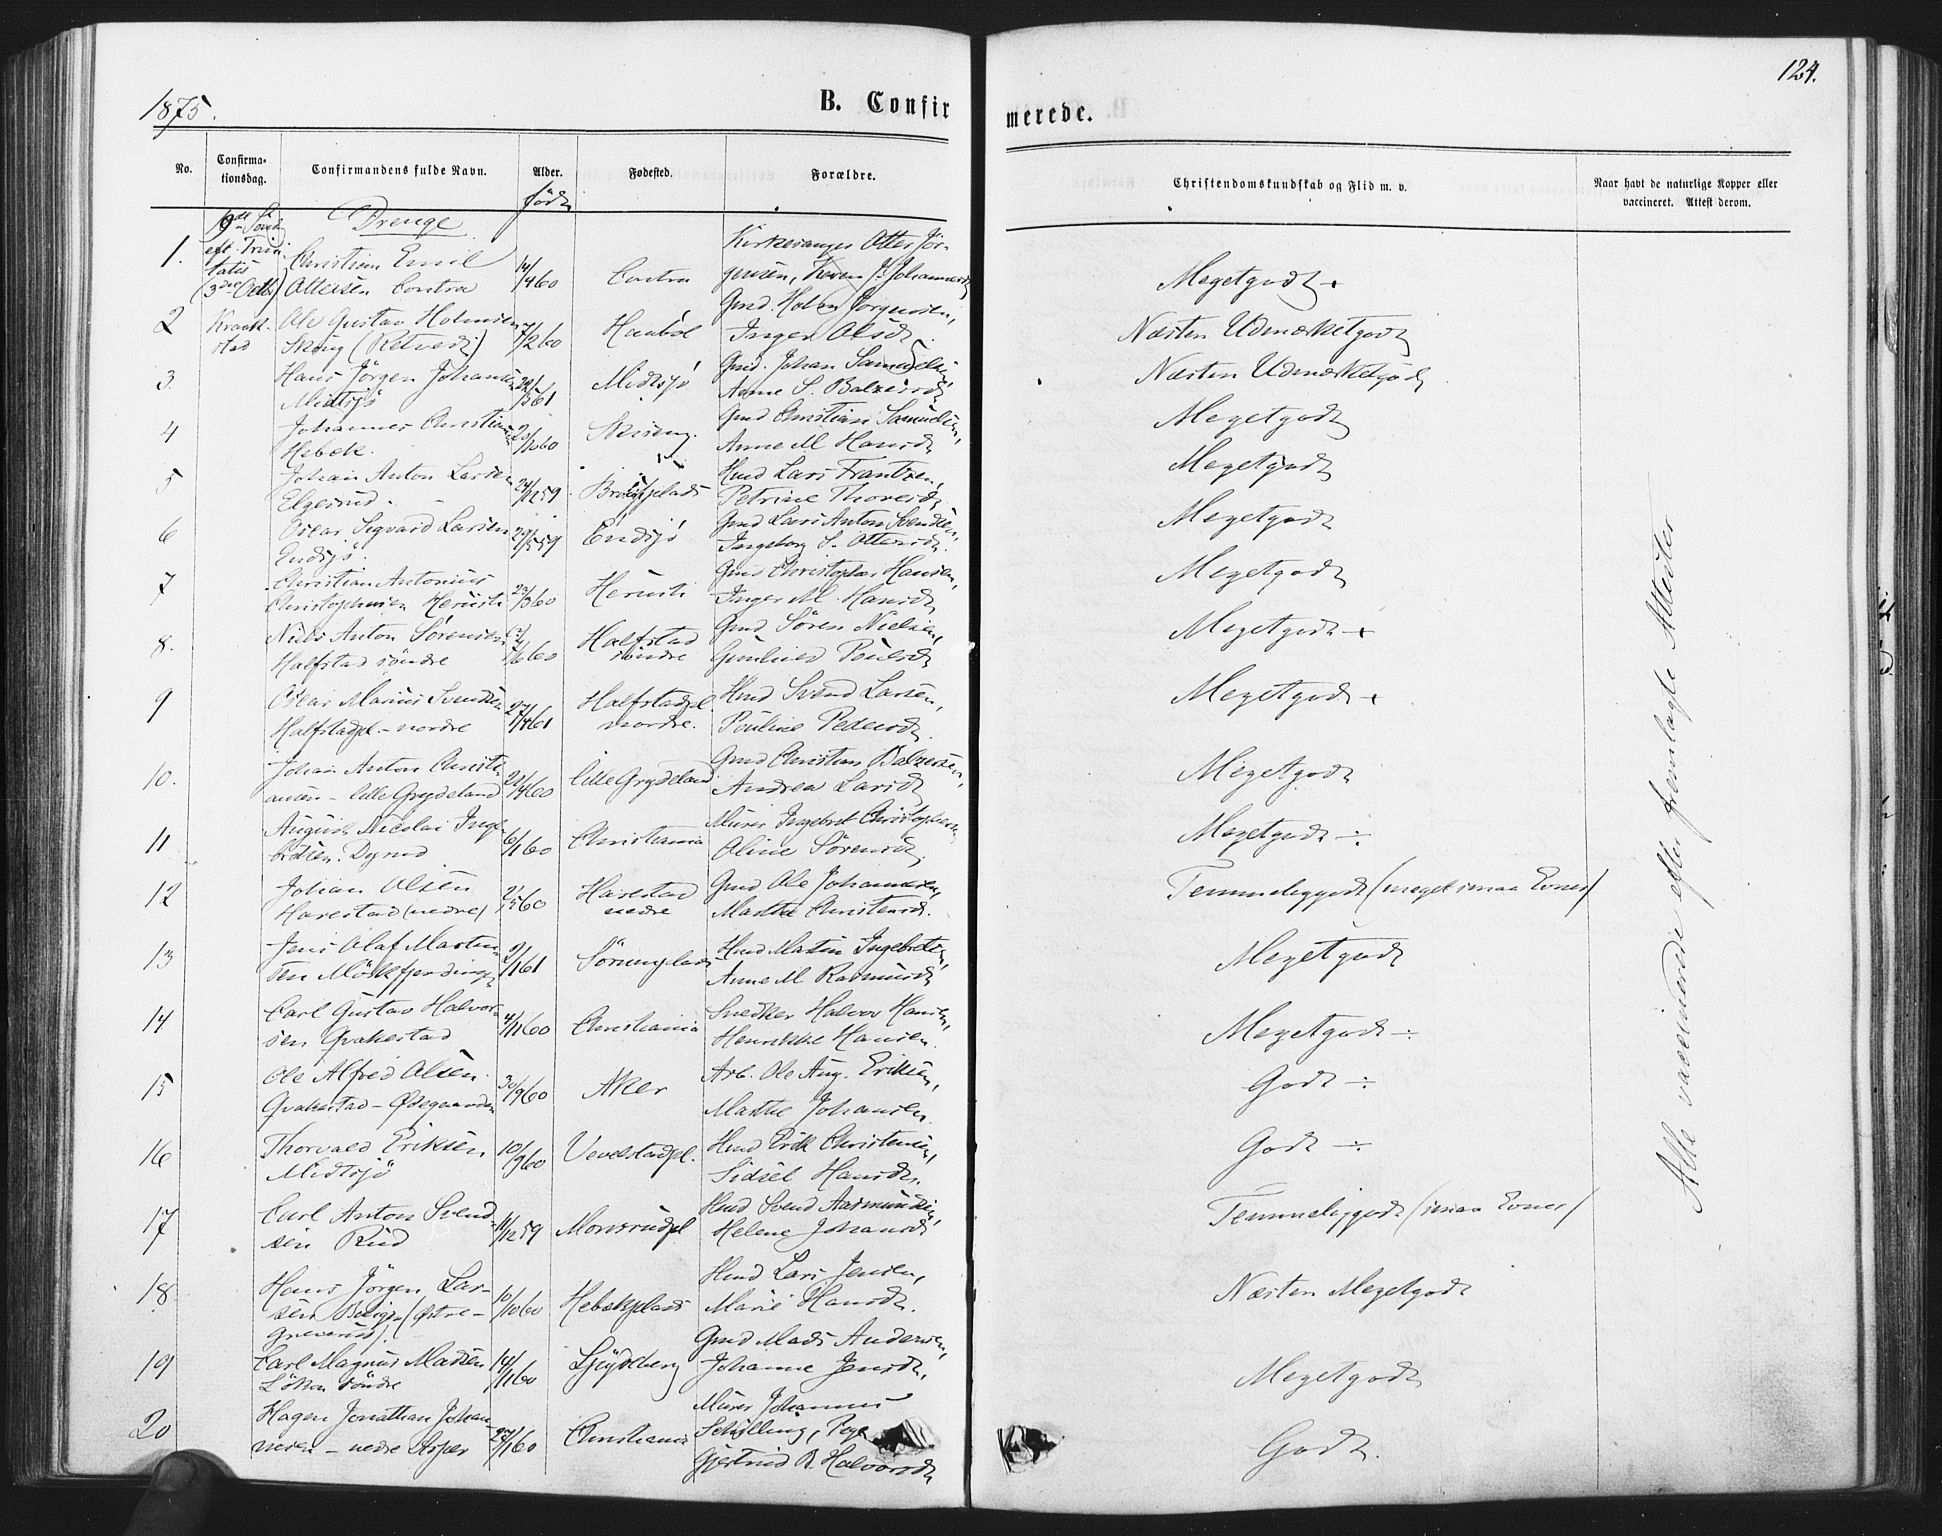 124.
1875.
B. Confir
merede.
No.
Confirma-
tionsdag.
Confirmandens fulde Navn.
Alder.
født
Fødested.
Forældre.
Christendomskundskab og Flid m. v.
Naar havt de naturlige Kopper eller
vaccineret. Attest derom.
Drenge
1.
eft. Trini
tatis
Christian Emil
Ottersen Contra
14/4 60
Contra
Kirkesanger Otter Jör-
gensen, Karen J. Johannesd
Megetgodt +
2
Kraak-
stad
Ole Gustav Holmsen
Skoug (Retvedt)
7/2 60
Haabøl
Gmd. Holm Jorgensen,
Inger Olsdt.
Næsten Udmærketgodt
3.
Hans Jörgen Johansen
Midtsjö
Midtsjö
Gmd. Johan Samuelsen,
Anne S. Balzersd.
Næsten Udmærketgodt
4
Johannes Christians
Hebæk.
Gmd Christian Samuelsen,
Anne M Hansdt
Megetgodt
5
Johan Anton Larsen
Elgerud.
24/12 59
Hmd Lars Frantzen,
Petrine Thoresdt.
Megetgodt
6
Oscar Sigvard Larsen
Endsjö.
29/5 59
Endsjö
Gmd Lars Anton Svendsen,
Ingeborg S. Ottersdt.
Megetgodt
7
Christian Antonius
Christophersen Herusti
23/3 60
Herusti
Gmd Christopher Hansen,
Inger M. Hansdt
Megetgodt
8.
Niels Anton Sörensen
Halfstad söndre
Halfstad
söndre
Gmd Sören Nielsen,
Gunhild Poulsdt
Megetgodt +
9
Oscar Marius Svendsen
Halfstadpl. - nordre
27/4 61
Halfstadpl
nordre.
Hmd Svend Larsen,
Pauline Pedersdt.
Megetgodt +
10.
Johan Anton Christi-
ansen - lille Grydeland
22/4 60
lille Grydeland
Gmd Christian Balzersen,
Andrea Larsdt
Megetgodt
11
August Nicolai Inge-
bretsen. Dyrud
6/1 60
Christiania
Murer Ingebret Christophersen
Oline Sörensdt.
Megetgodt ÷
12
Johan Olsen
Harestad (nedre)
2/5 60
Harestad
nedre
Gmd Ole Johannesen,
Marthe Christensdt.
Temmeliggodt (meget smaa Evner)
13
Jens Olaf Marthin-
sen Mörkfjerdingen
2/1 61
Hmd Martin Ingebretsen,
Anne M Rasmusdt
Megetgodt
14
Carl Gustav Halvor-
sen Qvakestad
4/11 60
Christiania
Snedker Halvor Hansen,
Henrikke Hansen.
Megetgodt ÷
15
Ole Alfred Olsen.
Qvakestad - Ödegaarden
30/9 60
Aker
Arb. Ole Aug. Eriksen,
Marthe Johansen.
Godt ÷
16
Thorvald Eriksen
Midtsjö
10/9 60
Vevelstadpl.
Hmd Erik Christensen,
Sidsel Hansdt.
Godt ÷
17
Carl Anton Svend-
sen Rud
11/12 59
Monsrudpl
Hmd Svend Aasmundsen,
Helene Johansdt
Temmeliggodt (smaa Evner)
18.
Hans Jörgen Lar-
sen Berger (østre -
Greverud).
10/10 60
Hebækplads
Hmd Lars Jensen,
Marie Hansdt.
Næsten Megetgodt
19
Carl Magnus Madsen
Löken söndre
14/1 60
Spydeberg
Gmd Mads Andersen,
Johanne Jensdt.
Megetgodt
20
Hagen Jonathan Johan-
nesen - nedre Asper
27/1 60
Christiania
Murer Johannes
Schilling, Pige
Gjertrud B. Halvorsdt
Godt.
Alle vaccinerede efter fremlagte Attester